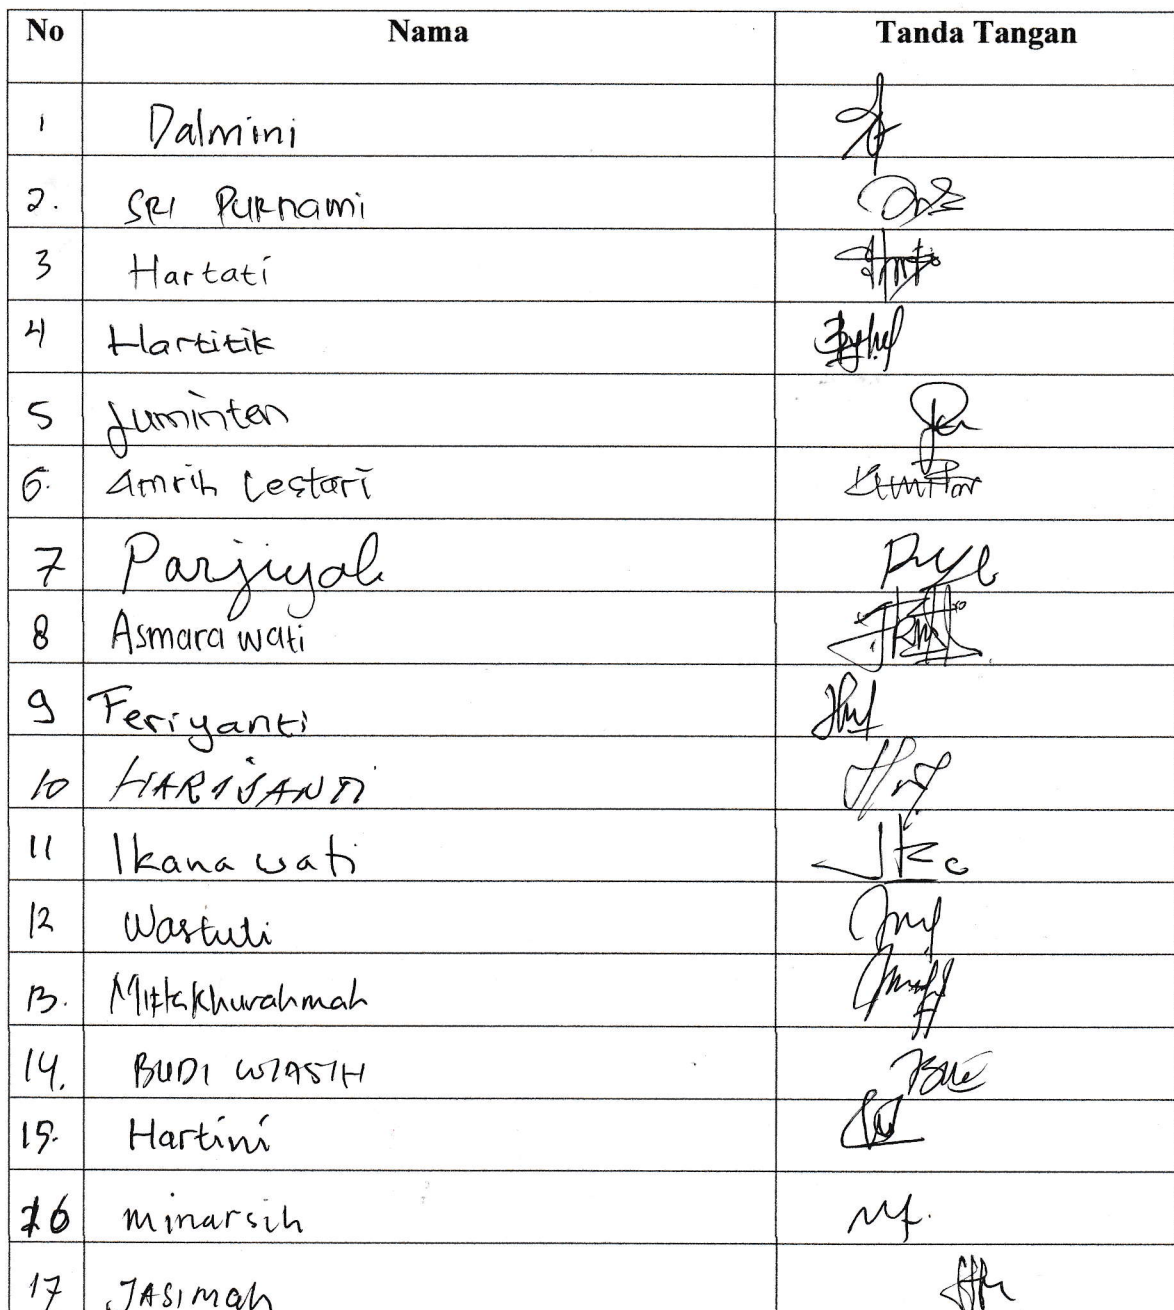 No Nama Tanda Tangan
1 Dalmini
2. SRI PURNAMI
3 Hartati
4 Hartitik
5 Juminten
6. Amrih Lestari
7 Parjiyah
8 Asmara wati
9 Feriyanti
10 HARIJANTI
11 Ikana wati
12 Wastuti
13. Miftakhurahmah
14. BUDI WIASIH
15. Hartini
16 minarsih
17 JASIMAH